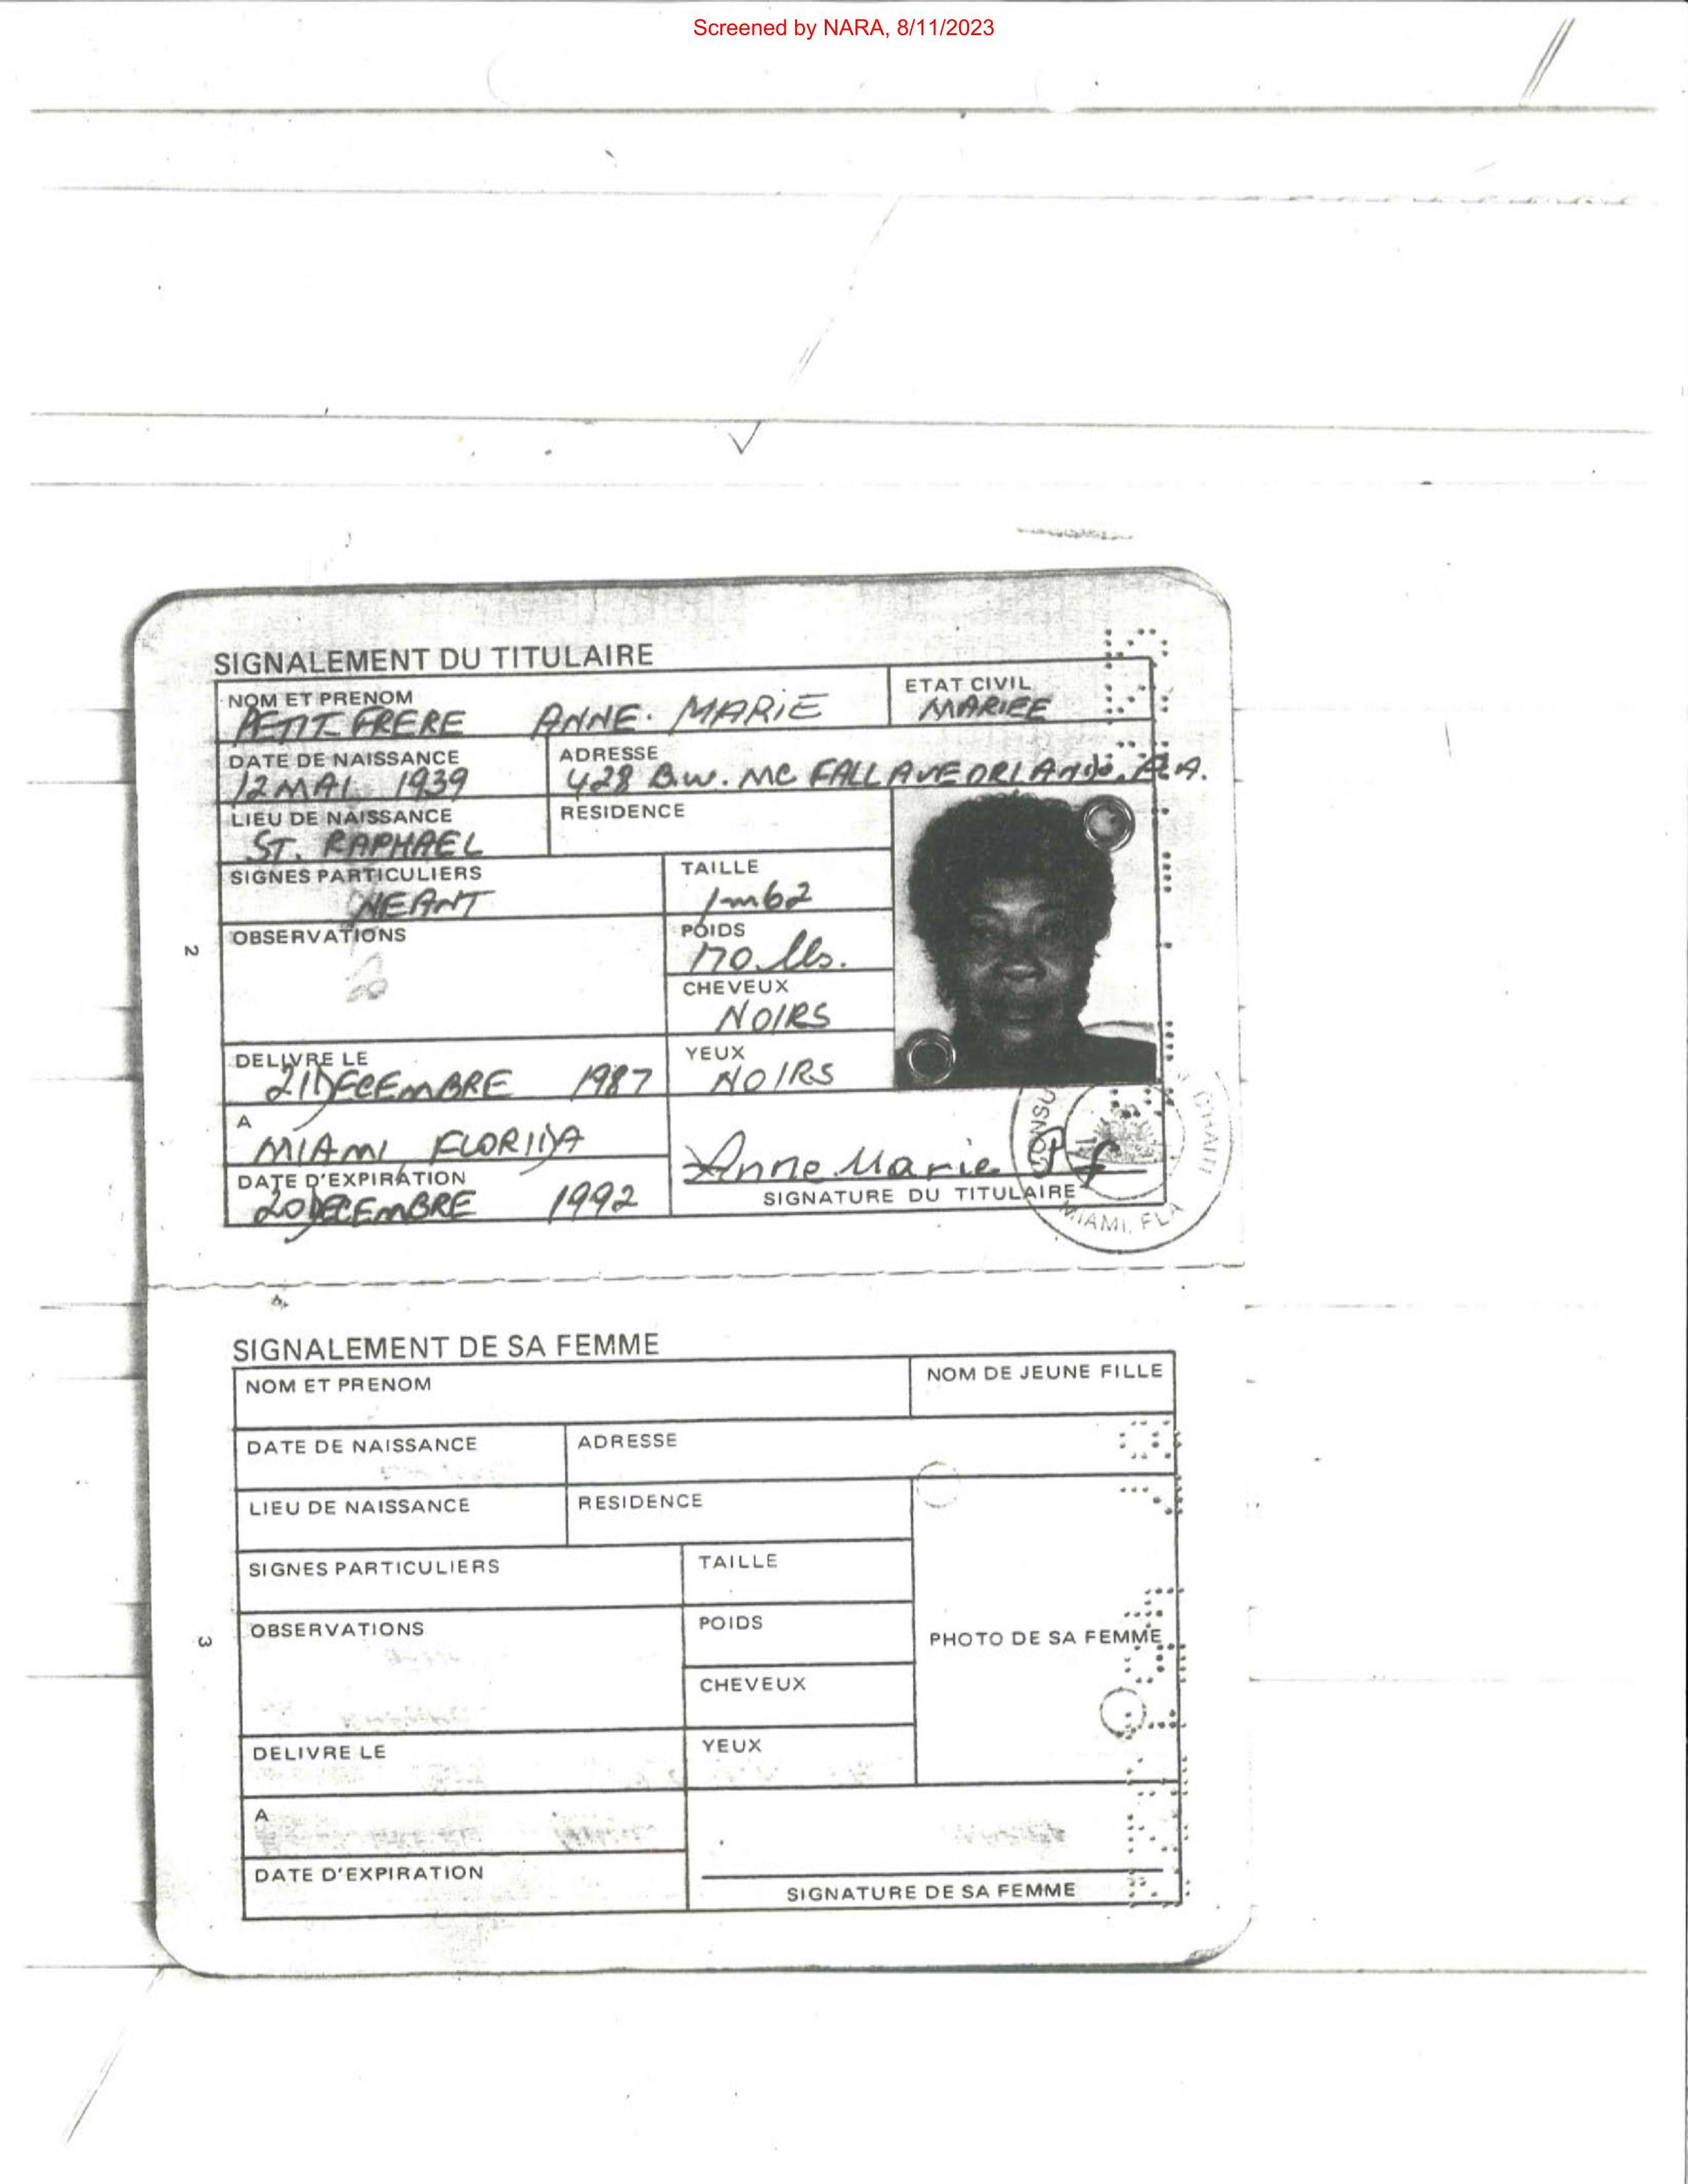 Screened by NARA, 8/11/2023
SIGNALEMENT DU TITULAIRE
NOM ET PRENOM
PETIT-FRERE ANNE-MARIE
ETAT CIVIL
MARIEE
DATE DE NAISSANCE
12 MAI 1939
ADRESSE
428 B.W. MC FALL AVE ORLANDO, FLA.
LIEU DE NAISSANCE
ST. RAPHAEL
RESIDENCE
SIGNES PARTICULIERS
NEANT
TAILLE
1m62
OBSERVATIONS
POIDS
170 lbs.
CHEVEUX
NOIRS
DELIVRE LE
21 DECEMBRE 1987
YEUX
NOIRS
A
MIAMI, FLORIDA
DATE D'EXPIRATION
20 DECEMBRE 1992
Anne Marie
SIGNATURE DU TITULAIRE
MIAMI, FLA
2
SIGNALEMENT DE SA FEMME
NOM ET PRENOM
NOM DE JEUNE FILLE
DATE DE NAISSANCE
ADRESSE
LIEU DE NAISSANCE
RESIDENCE
SIGNES PARTICULIERS
TAILLE
OBSERVATIONS
POIDS
PHOTO DE SA FEMME
CHEVEUX
DELIVRE LE
YEUX
A
DATE D'EXPIRATION
SIGNATURE DE SA FEMME
3